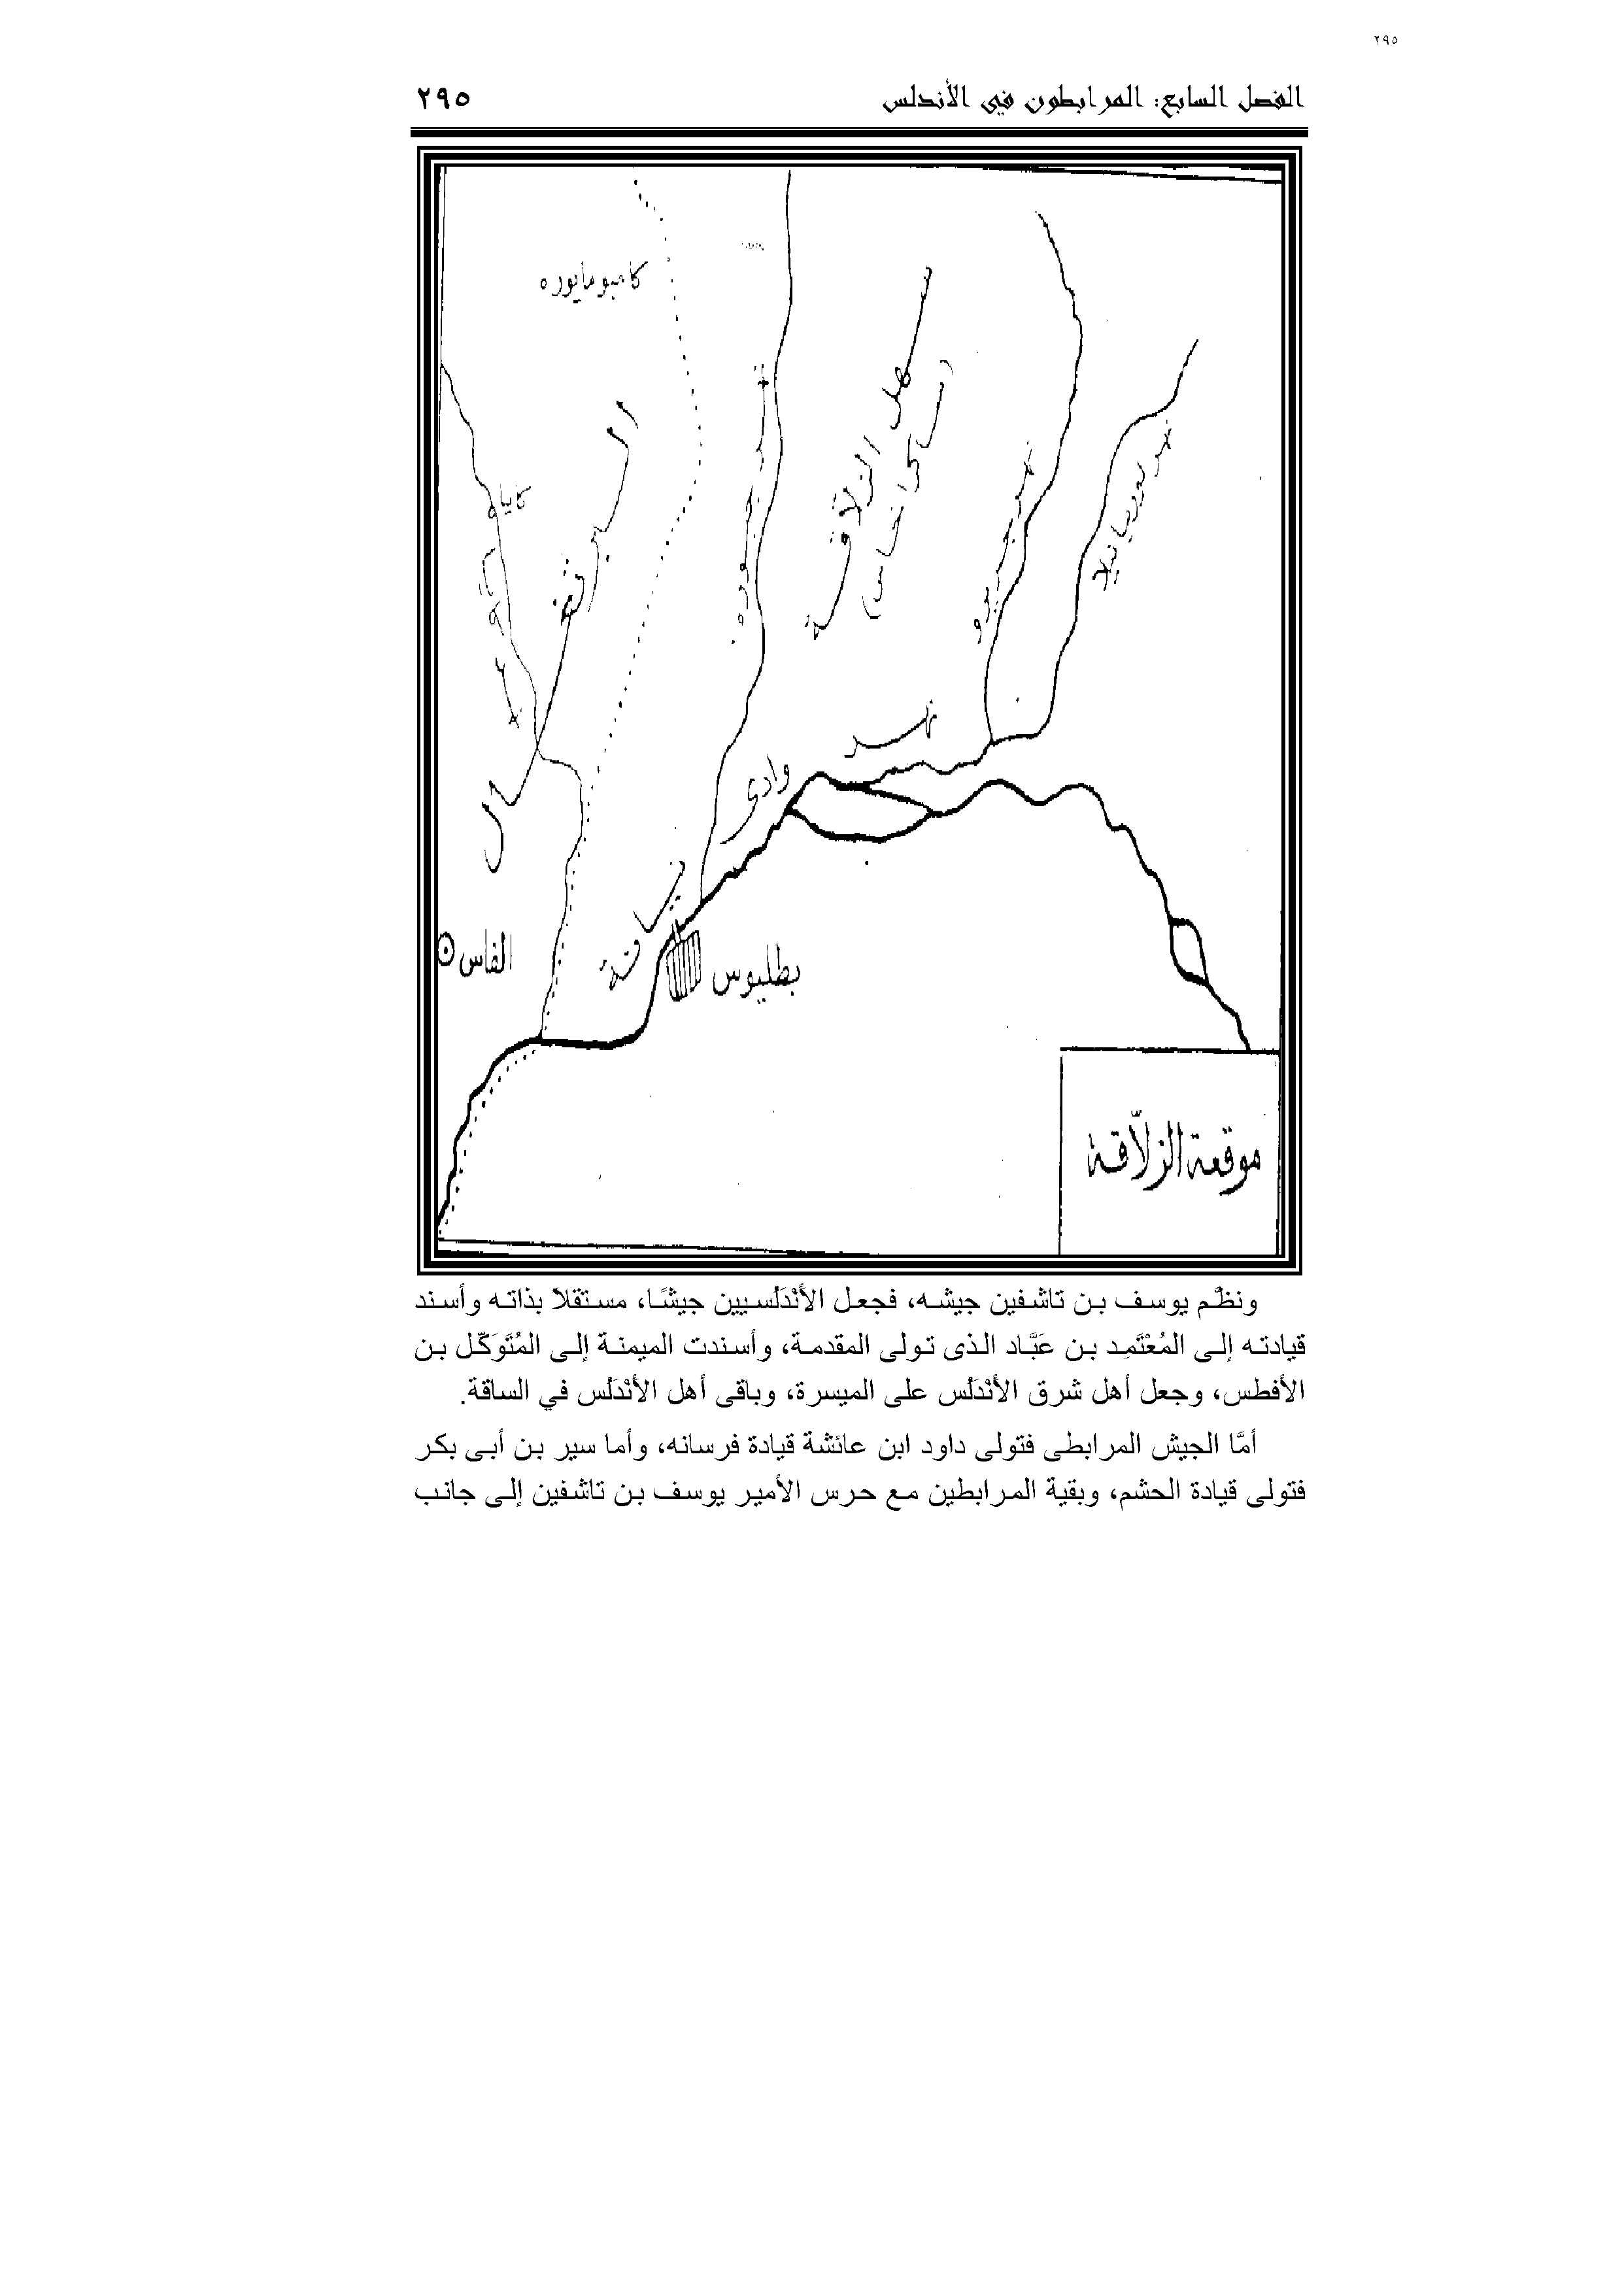 ٢٩٥
الفصل السابع: المرابطون في الأندلس ٢٩٥
كامبومايوره
كاياه
البرتغال
سهل الزلاقة
نهر
وادي
يانة
الفاس
بطليوس
موقعة الزلاّقة
ونظَّم يوسف بن تاشفين جيشه، فجعل الأنْدَلُسيين جيشًا، مستقلاً بذاته وأسند
قيادته إلى المُعْتَمِد بن عَبَّاد الذى تولى المقدمة، وأسندت الميمنة إلى المُتَوَكّل بن
الأفطس، وجعل أهل شرق الأنْدَلُس على الميسرة، وباقى أهل الأنْدَلُس في الساقة.
أمَّا الجيش المرابطى فتولى داود ابن عائشة قيادة فرسانه، وأما سير بن أبى بكر
فتولى قيادة الحشم، وبقية المرابطين مع حرس الأمير يوسف بن تاشفين إلى جانب